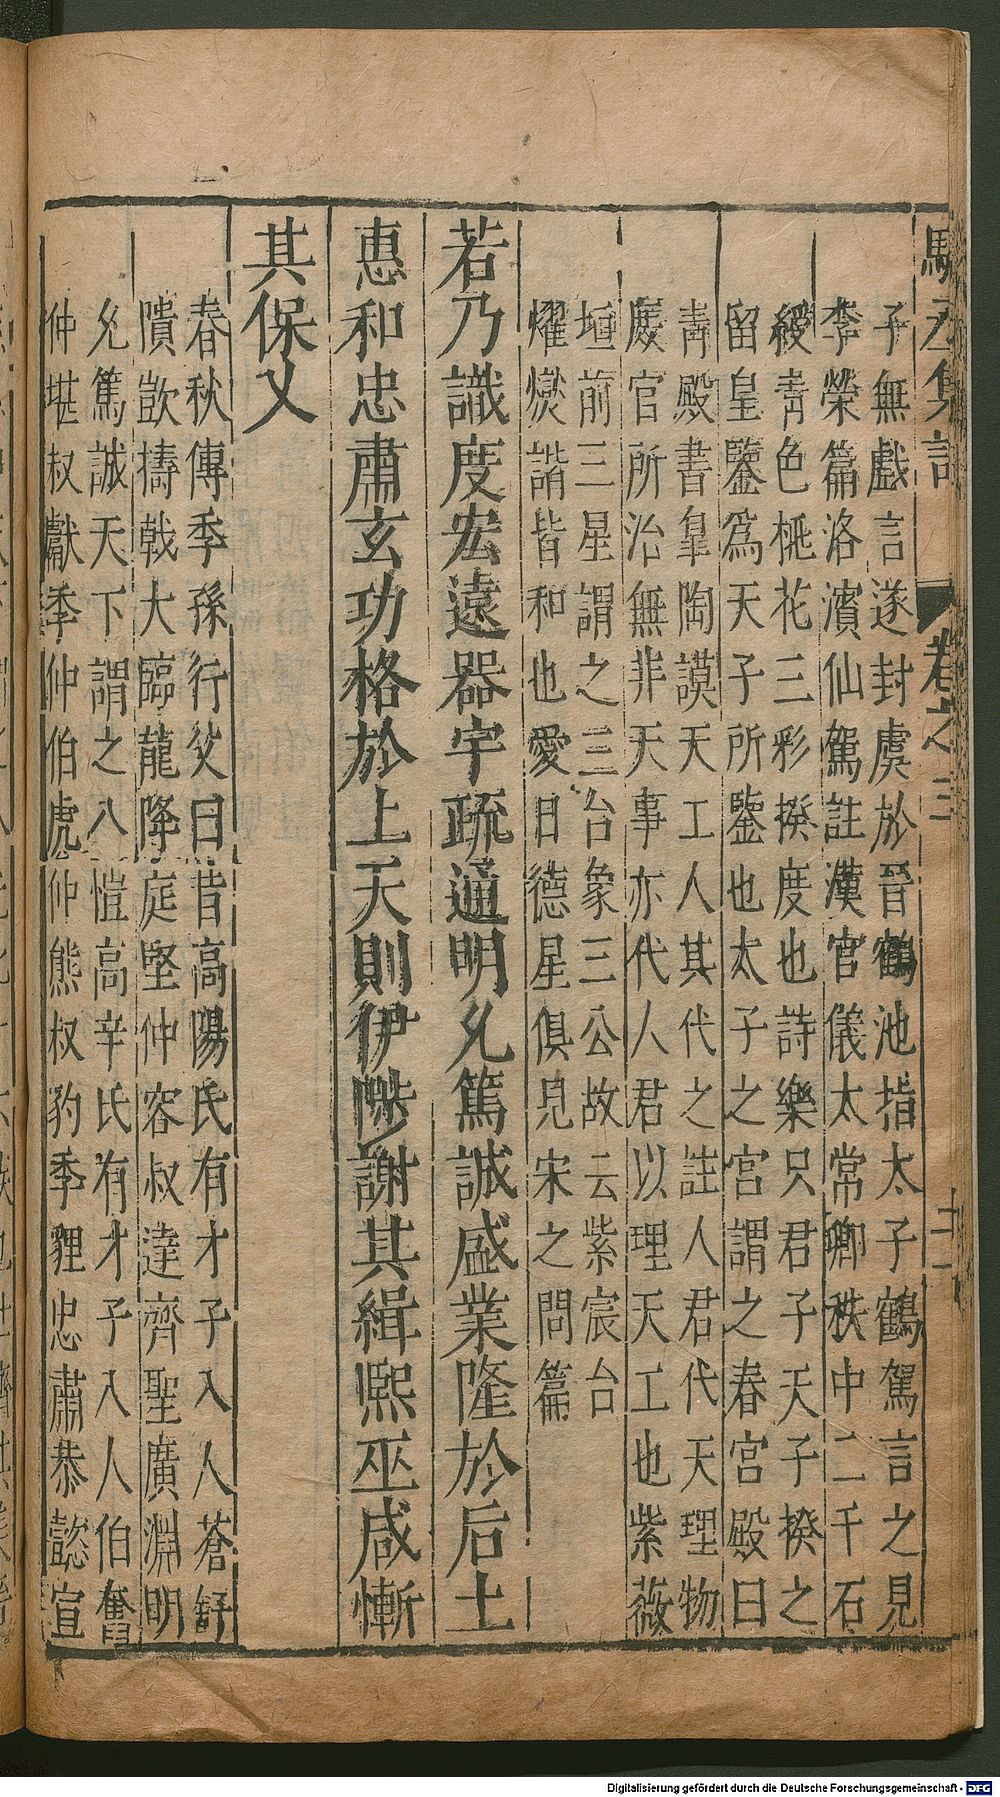 子無戲言遂封虞於晉鶴池指太子鶴駕言之見
李榮篇洛濱仙駕註漢官儀太常卿秩中二千石
綬青色桃花三彩揆度也詩樂只君子天子揆之
留皇鑒為天子所鑒也太子之宮謂之春宮殿曰
青殿書臯陶謨天工人其代之註人君代天理物
庶官所治無非天事亦代人君以理天工也紫薇
垣前三星謂之三台象三公故云紫宸台
燿爕諧皆和也愛日德星俱見宋之問篇
若乃識度宏遠器宇疏通明允篤誠盛業隆於后土
惠和忠肅玄功格於上天則伊陟謝其緝熙巫咸慚
其保乂
春秋傳季孫行父曰昔高陽氏有才子八人蒼舒
隤敳檮戭大臨龍降庭堅仲容叔達齊聖廣淵明
允篤誠天下謂之八愷高辛氏有才子八人伯奮
仲堪叔獻季仲伯虎仲熊叔豹季貍忠肅恭懿宣
卷之三
Digitalisierung gefördert durch die Deutsche Forschungsgemeinschaft - DFG